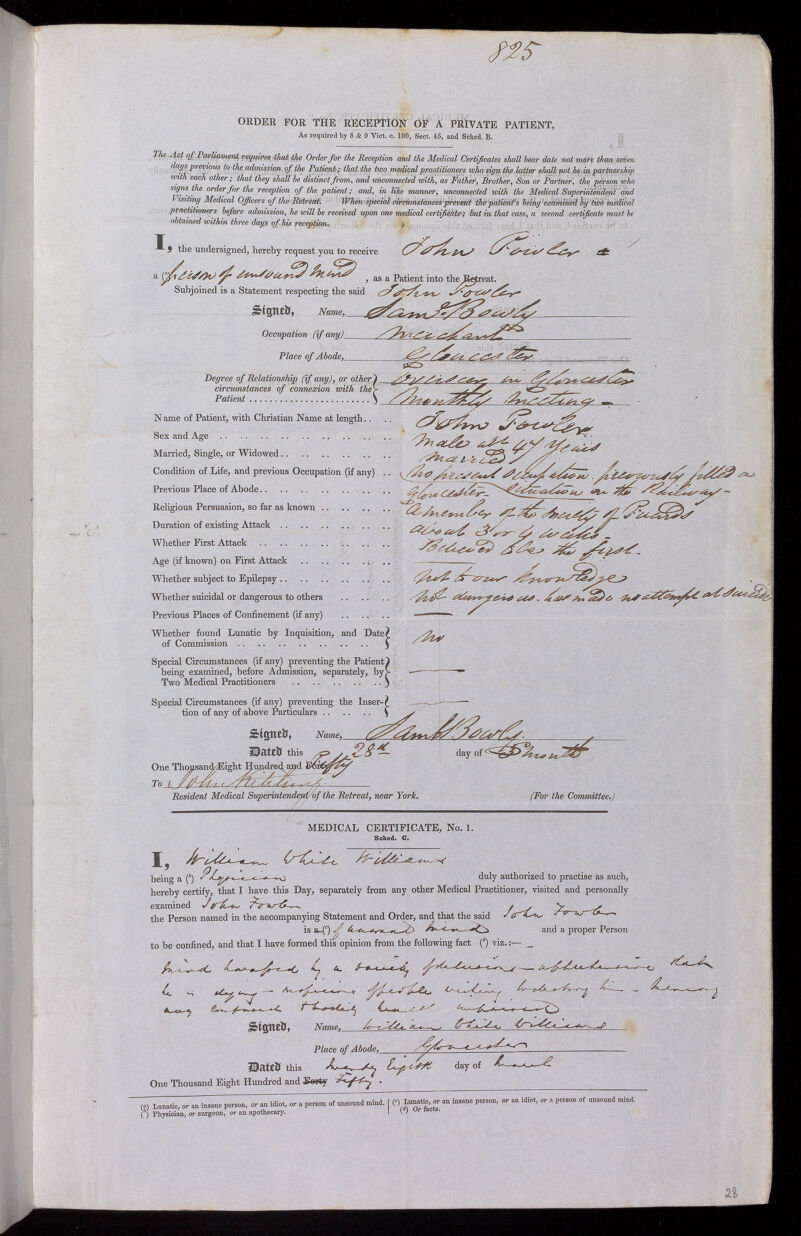 825
ORDER FOR THE RECEPTION OF A PRIVATE PATIENT,
As required by 8 & 9 Vict. c. 100, Sect. 45, and Sched. B.
The Act of Parliament requires that the Order for the Reception and the Medical Certificates shall bear date not more than seven
days previous to the admission of the Patient; that the two medical practitioners who sign the latter shall not be in partnership
with each other; that they shall be distinct from, and unconnected with, as Father, Brother, Son or Partner, the person who
signs the order for the reception of the patient; and, in like manner, unconnected with the Medical Superintendent and
Visiting Medical Officers of the Retreat. When special circumstances prevent the patient's being examined by two medical
practitioners before admission, he will be received upon one medical certificate; but in that case, a second certificate must be
obtained within three days of his reception.
I, the undersigned, hereby request you to receive John Fowler a
a (²) person of unsound mind, as a Patient into the Retreat.
Subjoined is a Statement respecting the said John Fowler
Signed, Name, Saml. Bowly
Occupation (if any) Merchant
Place of Abode, Gloucester
Degree of Relationship (if any), or other Overseer in Gloucester
circumstances of connexion with the
Patient Monthly Meeting -
Name of Patient, with Christian Name at length John Fowler
Sex and Age Male abt 47 Years
Married, Single, or Widowed married
Condition of Life, and previous Occupation (if any) No present occupation previously filled a
situation on the Railway -
Previous Place of Abode Gloucester
Religious Persuasion, so far as known A member of the Society of Friends
Duration of existing Attack about 3 or 4 weeks
Whether First Attack Believed to be the first.
Age (if known) on First Attack —
Whether subject to Epilepsy Not to our knowledge
Whether suicidal or dangerous to others Not dangerous. has made no attempt at suicide
Previous Places of Confinement (if any) —
Whether found Lunatic by Inquisition, and Date
of Commission No
Special Circumstances (if any) preventing the Patient
being examined, before Admission, separately, by —
Two Medical Practitioners
Special Circumstances (if any) preventing the Inser-
tion of any of above Particulars —
Signed, Name, Saml Bowly.
Dated this 28th day of month
One Thousand Eight Hundred and Forty Fifty
To John
Resident Medical Superintendent of the Retreat, near York. (For the Committee.)
MEDICAL CERTIFICATE, No. 1.
Sched. C.
I, William White Williams
being a (¹) Physician duly authorized to practise as such,
hereby certify, that I have this Day, separately from any other Medical Practitioner, visited and personally
examined John Fowler
the Person named in the accompanying Statement and Order, and that the said John Fowler
is a (²) of unsound mind and a proper Person
to be confined, and that I have formed this opinion from the following fact (⁴) viz.:—
Mind harassed by a variety of delusions - apprehensive that
he is dying - people wishing to destroy him - memory
confused & bodily health impaired
Signed, Name, William White Williams
Place of Abode, Gloucester
Dated this Twenty Eighth day of March
One Thousand Eight Hundred and Forty Fifty.
(²) Lunatic, or an insane person, or an idiot, or a person of unsound mind.
(¹) Physician, or surgeon, or an apothecary.
(³) Lunatic, or an insane person, or an idiot, or a person of unsound mind.
(⁴) Or facts.
28